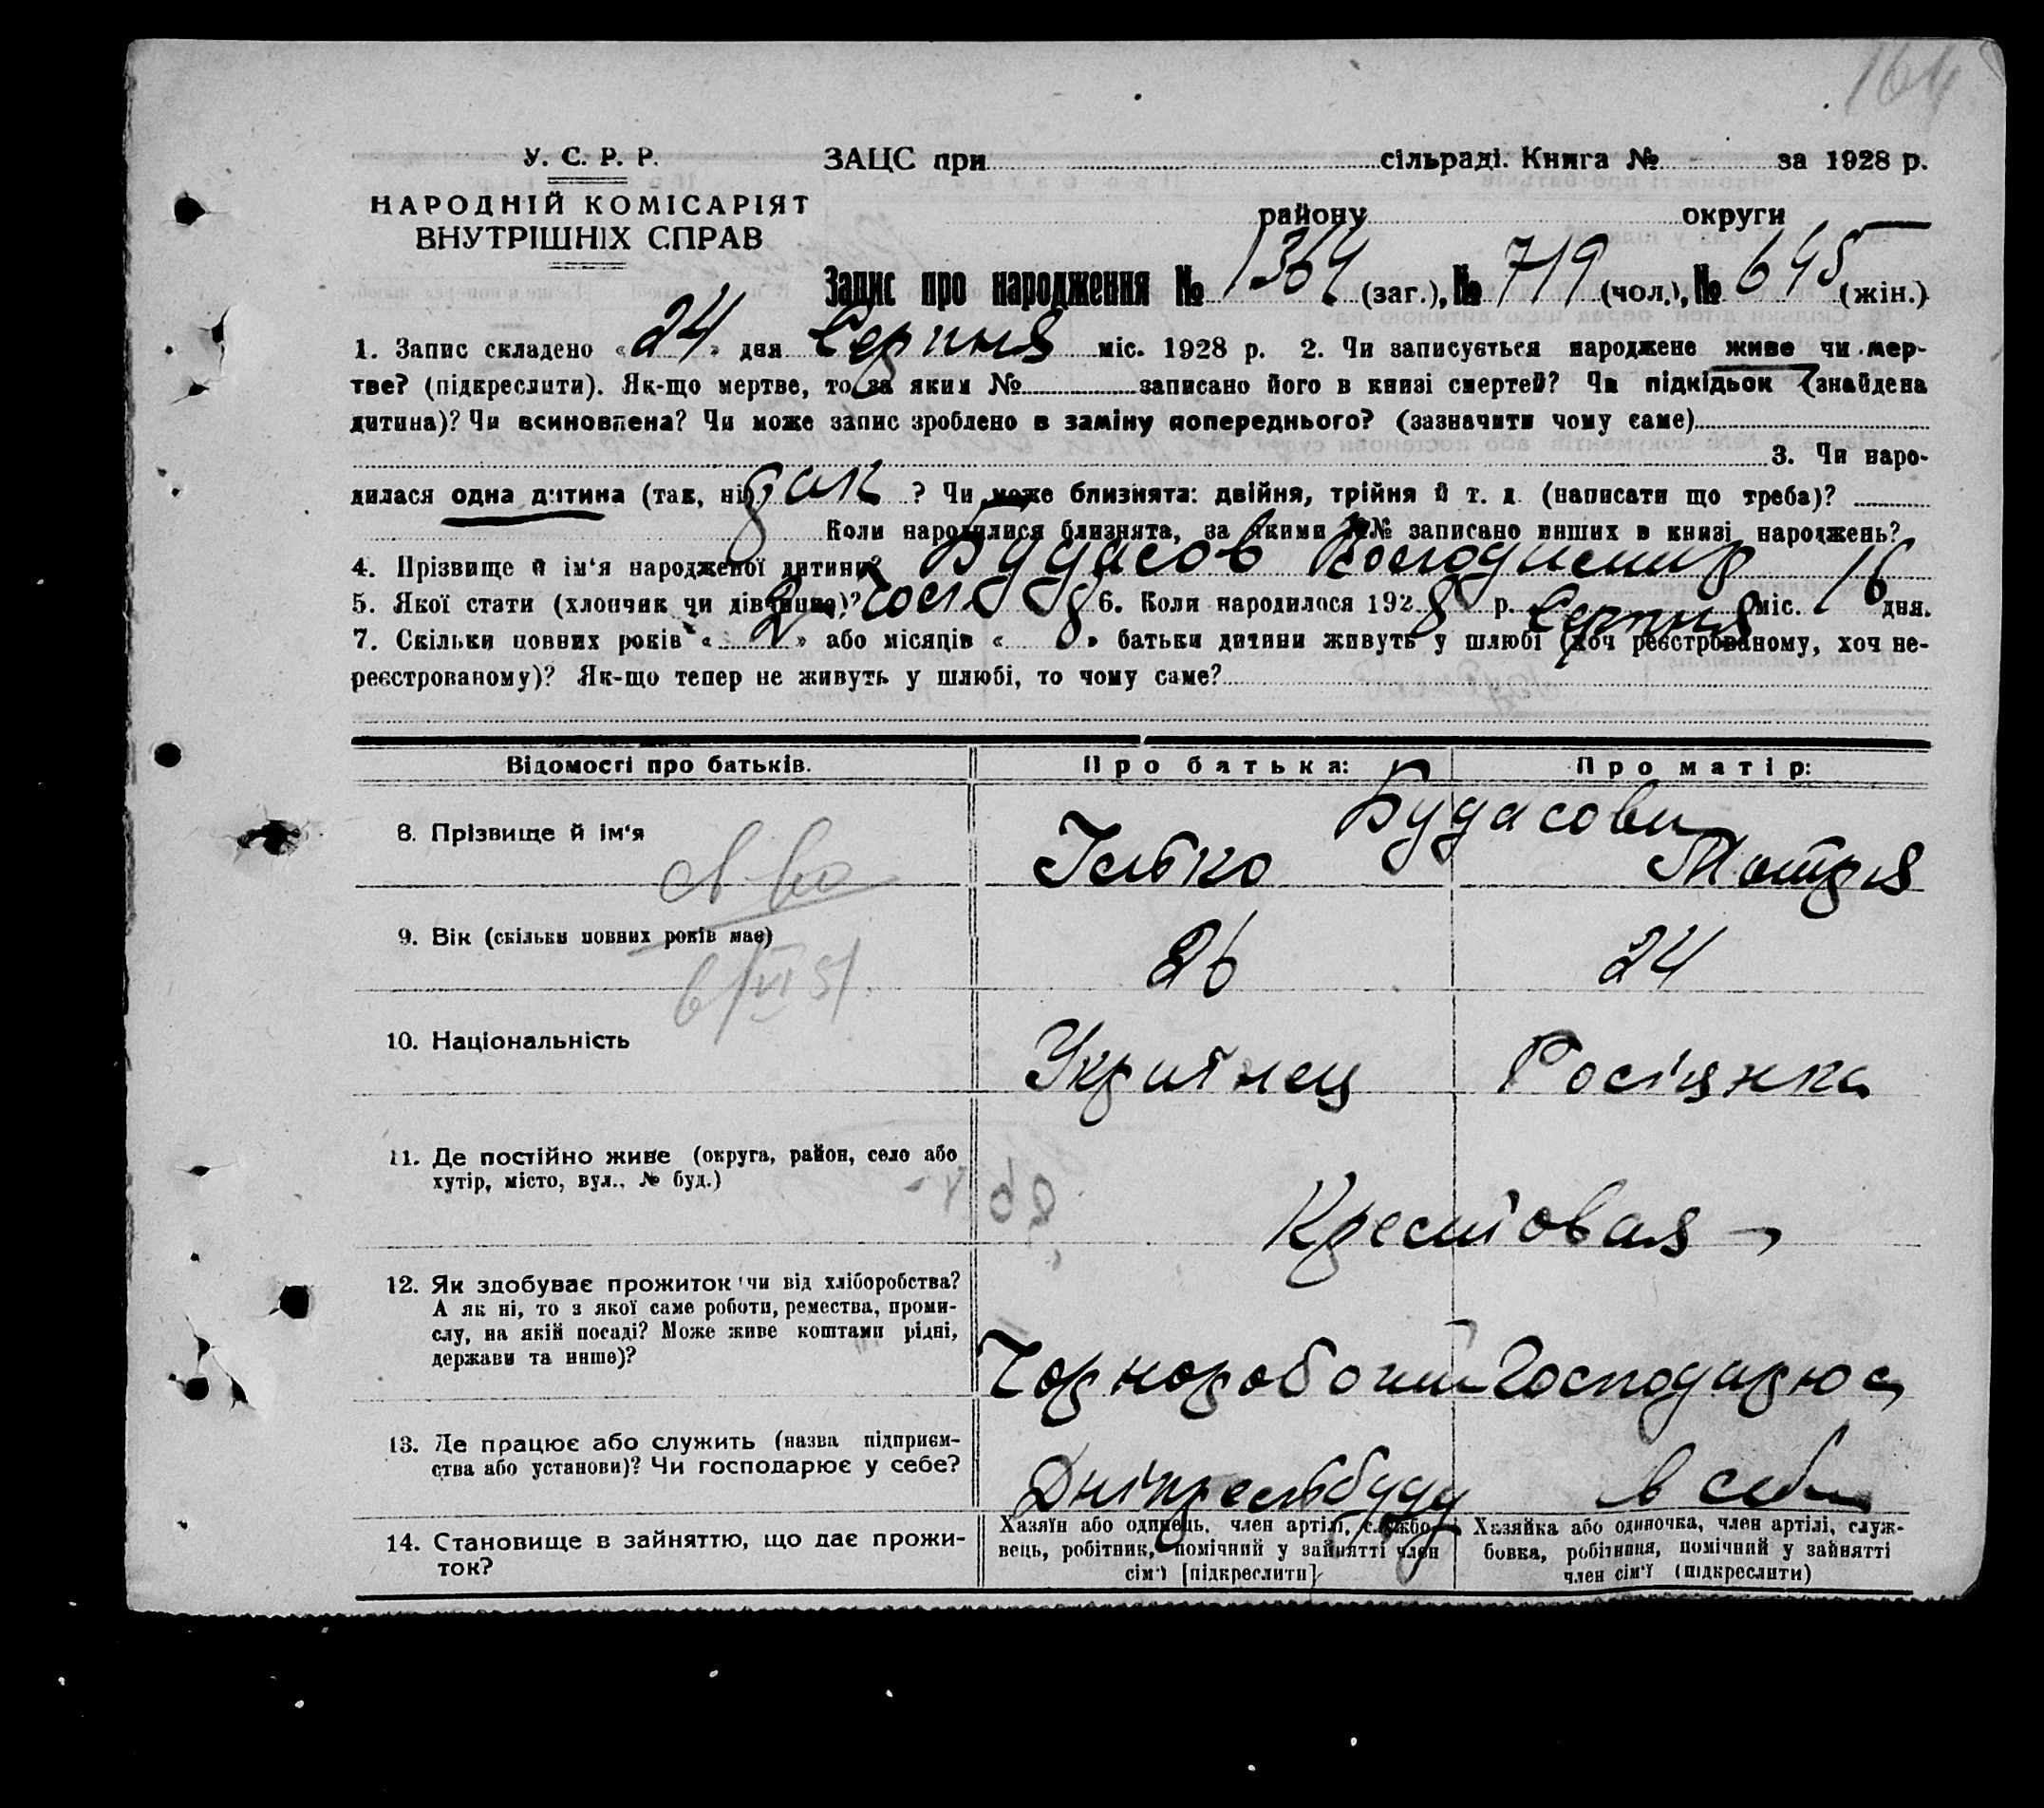 164
У. С. Р. Р. ЗАЦС при сільраді. Книга № за 1928 р.
НАРОДНІЙ КОМІСАРІЯТ
ВНУТРІШНІХ СПРАВ
району округи
Запис про народження № 1364 (заг.), № 719 (чол.), № 645 (жін.)
1. Запис складено «24» дня Серпня міс. 1928 р. 2. Чи записується народжене живе чи мер-
тве? (підкреслити). Як-що мертве, то за яким № записано його в книзі смертей? Чи підкідьок (знайдена
дитина)? Чи всиновлена? Чи може запис зроблено в заміну попереднього? (зазначити чому саме)
3. Чи наро-
дилася одна дитина (так, ні) так ? Чи може близнята: двійня, трійня й т. д. (написати що треба)?
Коли народилися близнята, за якими №№ записано инших в книзі народжень?
4. Прізвище й ім'я народженої дитини? Будасов Володимир
5. Якої стати (хлопчик чи дівчина)? 6. Коли народилося 1928 р. Серпня міс. 16 дня.
7. Скільки повних років «2» або місяців « » батьки дитини живуть у шлюбі (хоч реєстрованому, хоч не-
реєстрованому)? Як-що тепер не живуть у шлюбі, то чому саме?
Відомості про батьків. Про батька: Про матір:
Будасови
8. Прізвище й ім'я Ілько Мотря
9. Вік (скільки повних років має) 26 24
6/VI 51
10. Національність Українец Росіянка
11. Де постійно живе (округа, район, село або
хутір, місто, вул., № буд.)
Крестовая
12. Як здобуває прожиток чи від хліборобства?
А як ні, то з якої саме роботи, ремества, проми-
слу, на якій посаді? Може живе коштами рідні,
держави та инше)?
Чорноробочий Господарює
13. Де працює або служить (назва підприєм-
ства або установи)? Чи господарює у себе?
Дніпрельбуду в себе
14. Становище в зайняттю, що дає прожи-
ток?
Хазяїн або одинець, член артілі, службо-
вець, робітник, помічний у зайнятті член
сім'ї [підкреслити]
Хазяйка або одиночка, член артілі, служ-
бовка, робітниця, помічний у зайнятті
член сім'ї (підкреслити)